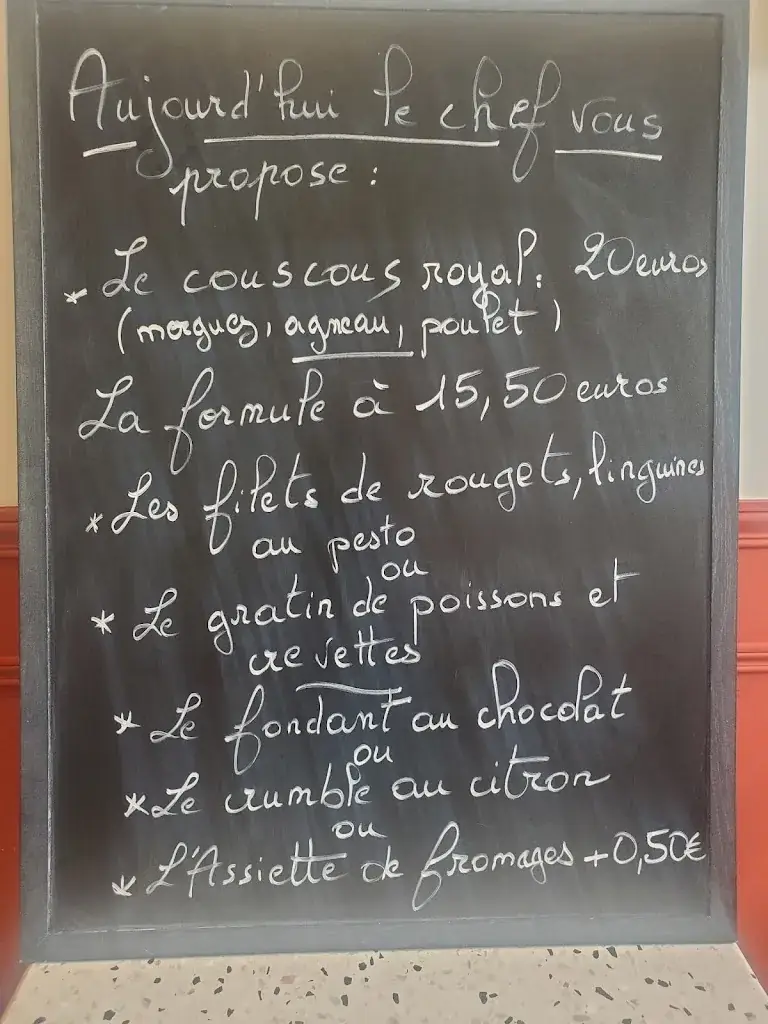 Aujourd'hui le chef vous
propose :
* Le couscous royal : 20 euros
(mergues, agneau, poulet)
La formule à 15,50 euros
* Les filets de rougets, linguines
au pesto
ou
* Le gratin de poissons et
crevettes
* Le fondant au chocolat
ou
* Le crumble au citron
ou
* L'Assiette de fromages +0,50€